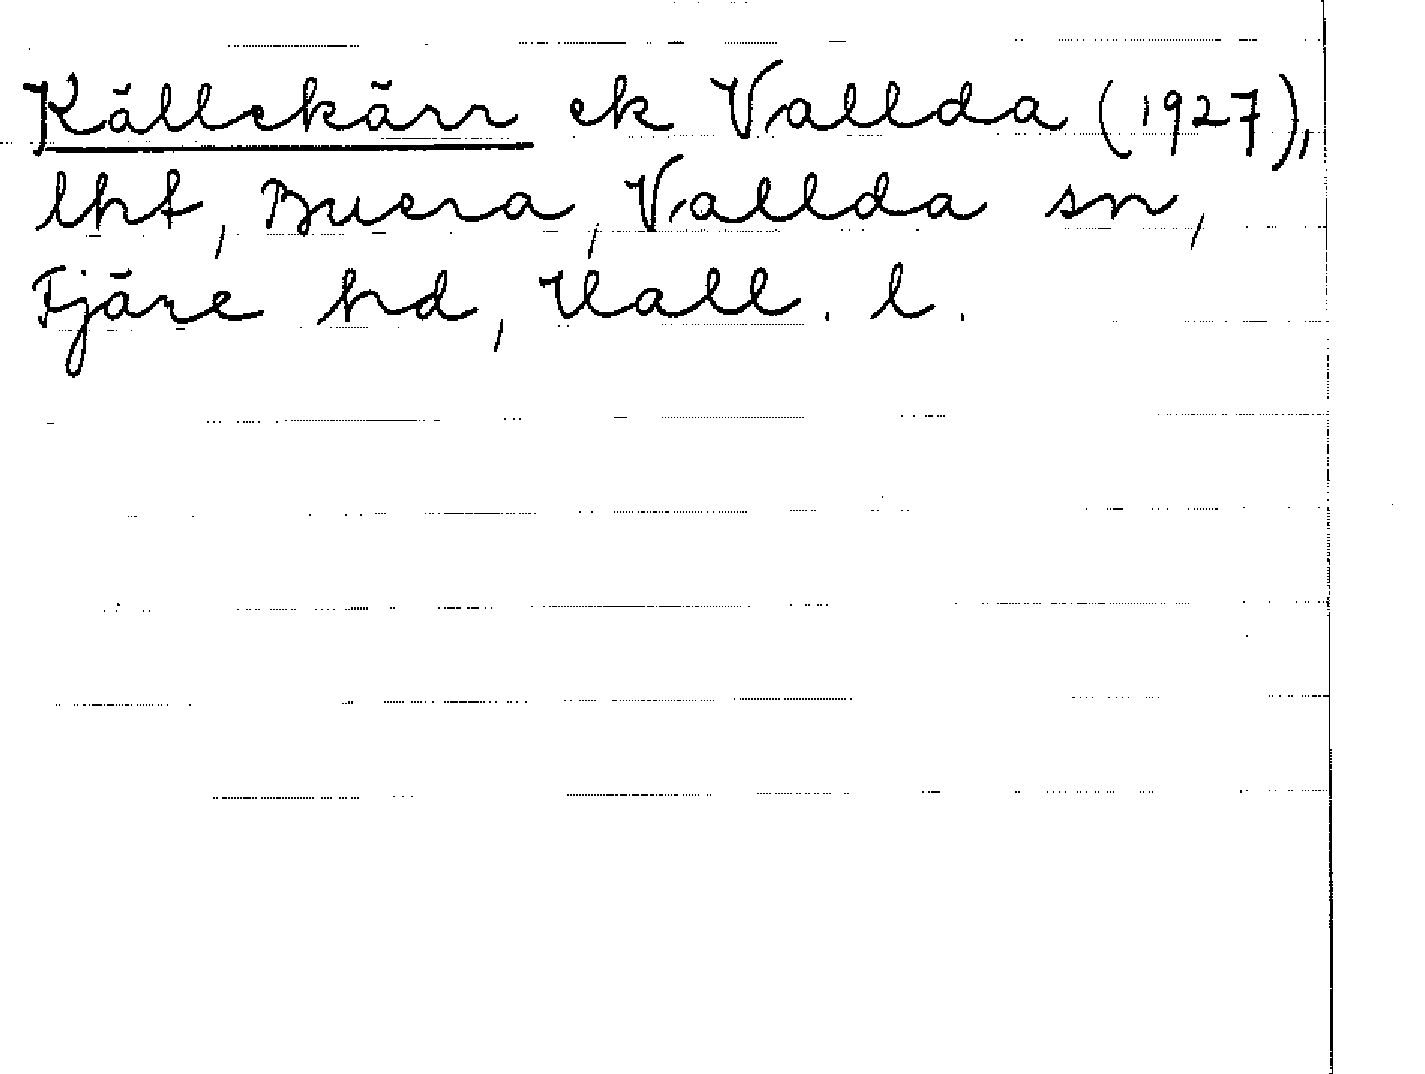 Källekärr ek Vallda (1927),
lht, Buera, Vallda sn,
Fjäre hd, Hall. l.